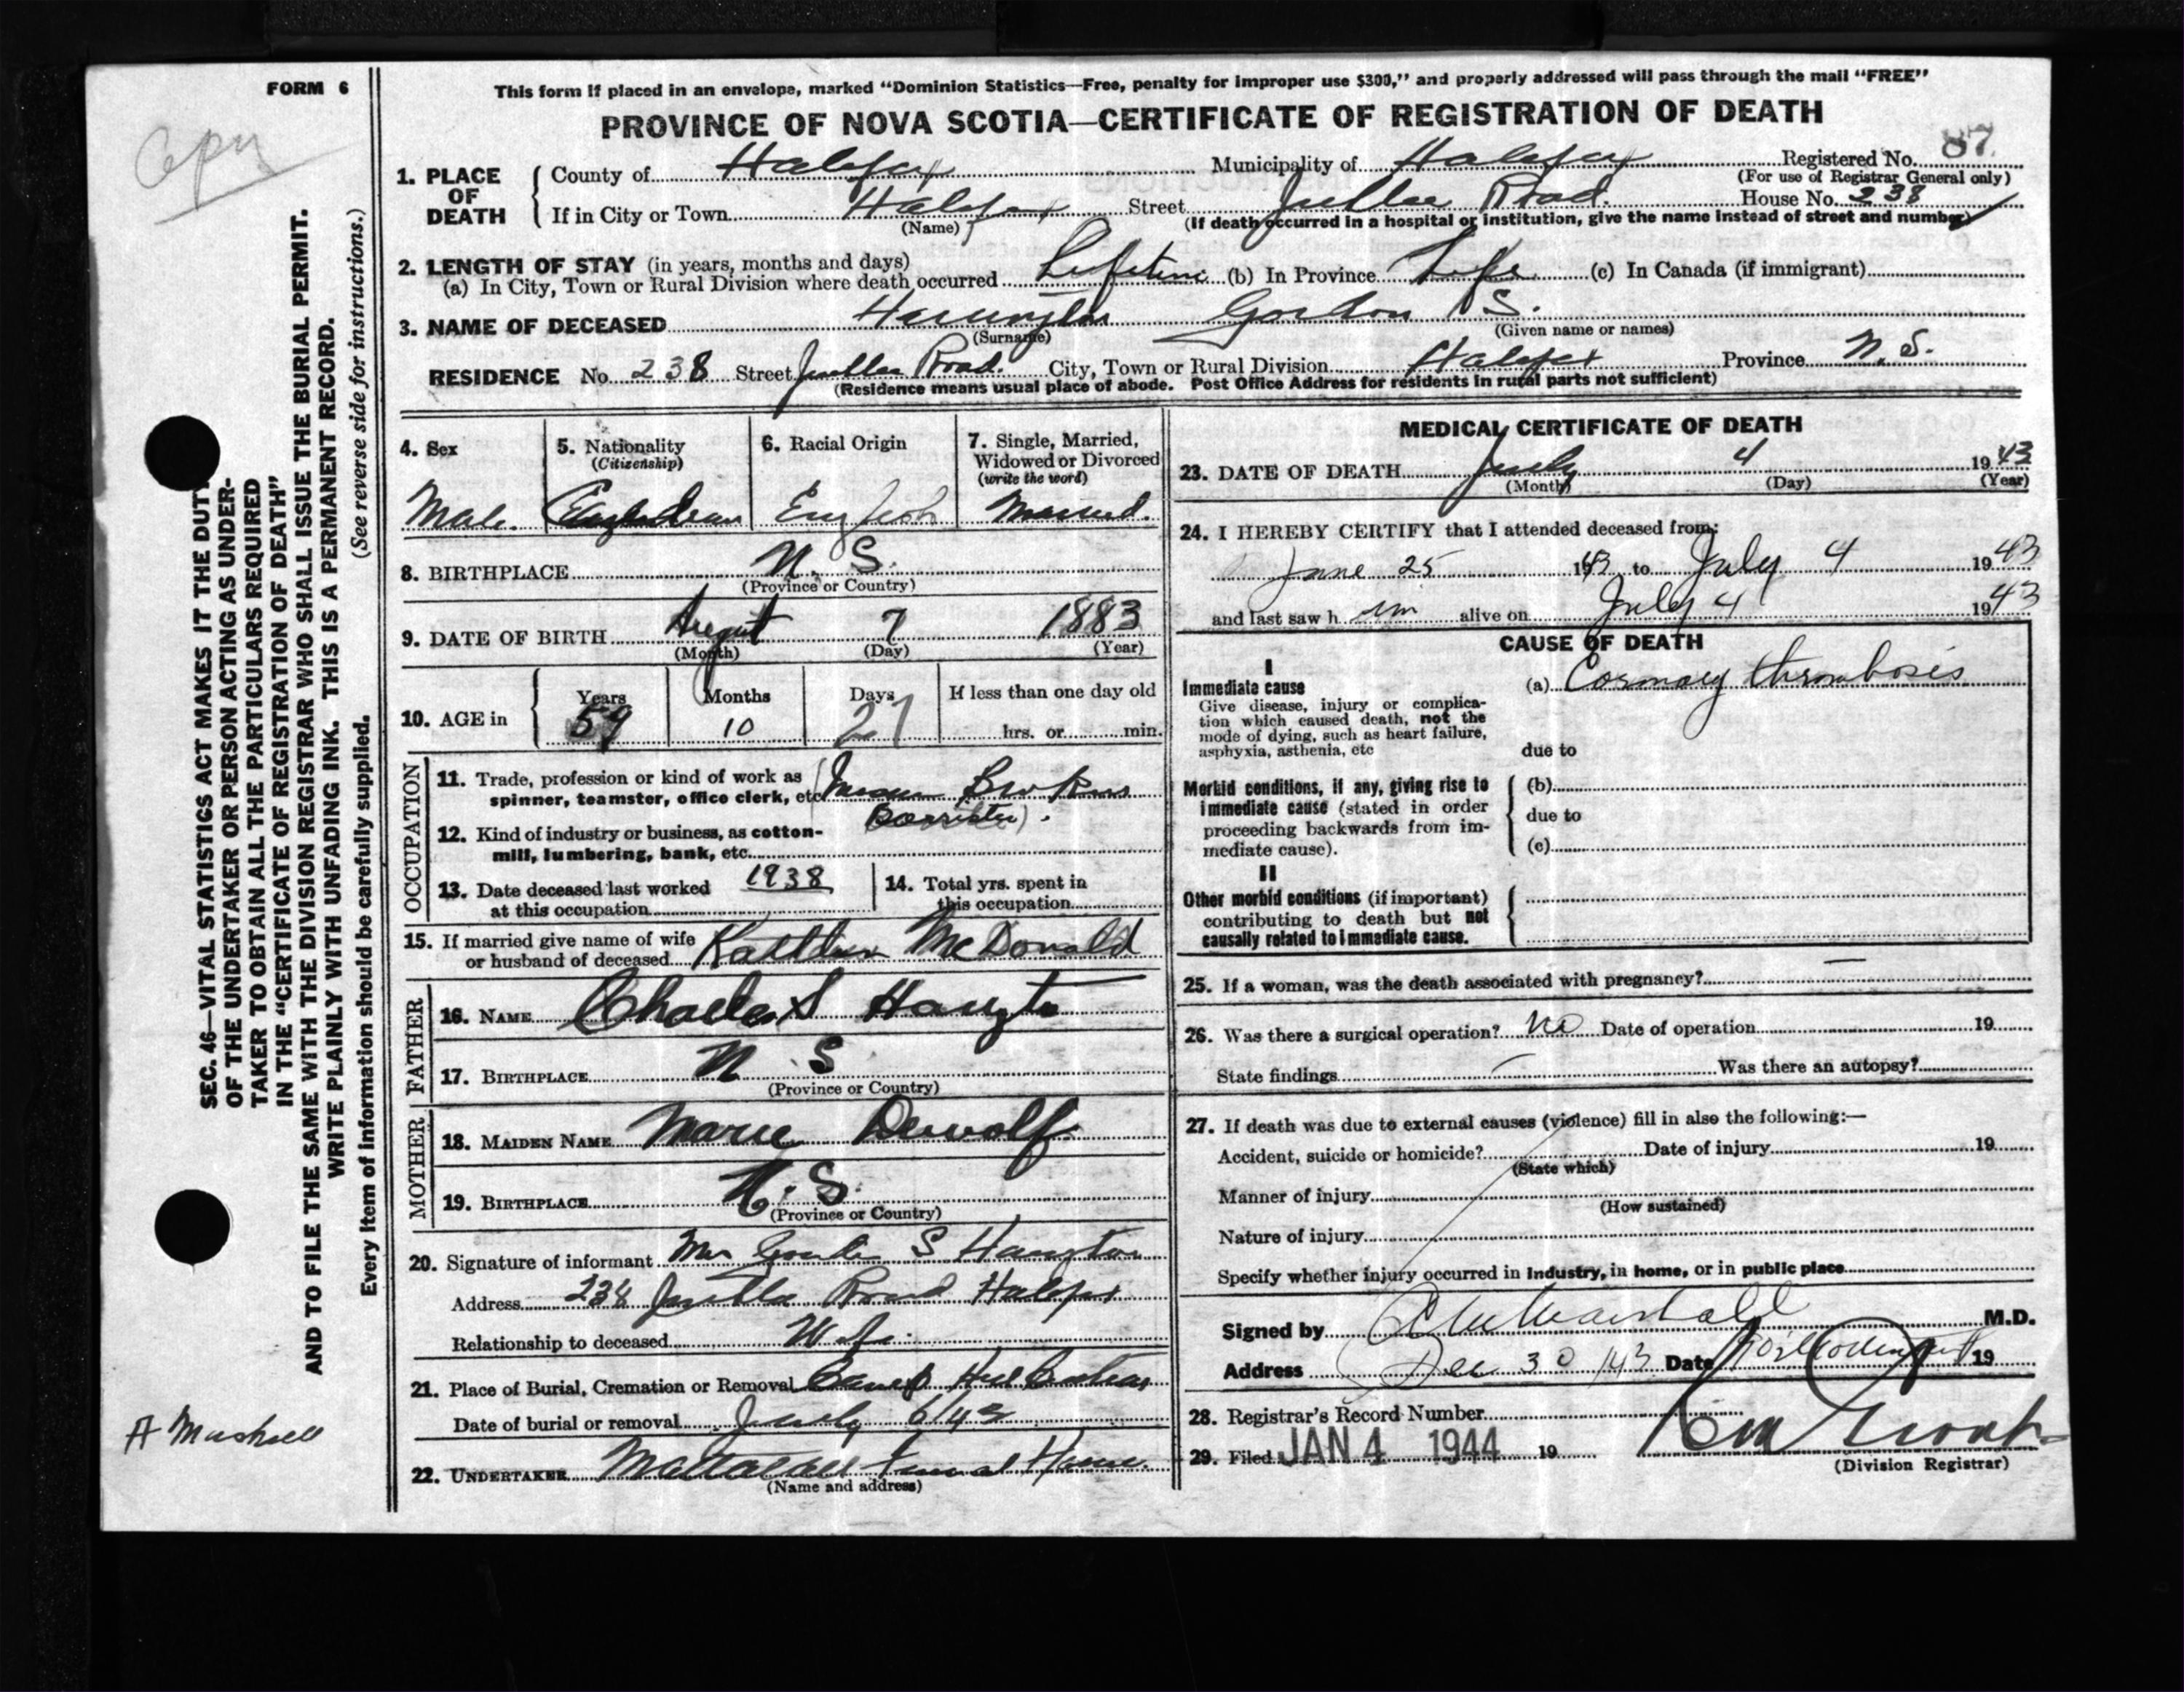 FORM 6
This form if placed in an envelope, marked "Dominion Statistics—Free, penalty for improper use $300," and properly addressed will pass through the mail "FREE"
PROVINCE OF NOVA SCOTIA—CERTIFICATE OF REGISTRATION OF DEATH
Copy
1. PLACE OF DEATH
County of Halifax Municipality of Halifax Registered No. 87
(For use of Registrar General only)
If in City or Town Halifax Street Road. House No. 238
(Name) (If death occurred in a hospital or institution, give the name instead of street and number)
2. LENGTH OF STAY (in years, months and days)
(a) In City, Town or Rural Division where death occurred Lifetime (b) In Province Life (c) In Canada (if immigrant)
3. NAME OF DECEASED Harrington Gordon S.
(Surname) (Given name or names)
RESIDENCE No. 238 Street Road. City, Town or Rural Division Halifax Province N.S.
(Residence means usual place of abode. Post Office Address for residents in rural parts not sufficient)
4. Sex
Male.
5. Nationality
(Citizenship)
6. Racial Origin
English
7. Single, Married,
Widowed or Divorced
(write the word)
Married.
8. BIRTHPLACE N. S.
(Province or Country)
9. DATE OF BIRTH August 7 1883
(Month) (Day) (Year)
10. AGE in
Years Months Days If less than one day old
59 10 27 hrs. or min.
OCCUPATION
11. Trade, profession or kind of work as
spinner, teamster, office clerk, etc.
(Barrister).
12. Kind of industry or business, as cotton-
mill, lumbering, bank, etc.
13. Date deceased last worked 1938
at this occupation
14. Total yrs. spent in
this occupation
15. If married give name of wife
or husband of deceased Kathleen McDonald
FATHER
16. NAME Charles S
17. BIRTHPLACE N. S
(Province or Country)
MOTHER
18. MAIDEN NAME Marie Dewolf
19. BIRTHPLACE N. S.
(Province or Country)
20. Signature of informant Mrs Gordon S Harrington
Address 238 Road Halifax
Relationship to deceased Wife.
21. Place of Burial, Cremation or Removal Camp Hill
Date of burial or removal July 6/43
22. UNDERTAKER Funeral Home.
(Name and address)
MEDICAL CERTIFICATE OF DEATH
23. DATE OF DEATH July 4 1943
(Month) (Day) (Year)
24. I HEREBY CERTIFY that I attended deceased from:
June 25 1943 to July 4 1943
and last saw him alive on July 4 1943
CAUSE OF DEATH
I
Immediate cause (a) Coronary thrombosis
Give disease, injury or complica-
tion which caused death, not the
mode of dying, such as heart failure,
asphyxia, asthenia, etc due to
Morbid conditions, if any, giving rise to (b)
immediate cause (stated in order due to
proceeding backwards from im-
mediate cause). (c)
II
Other morbid conditions (if important)
contributing to death but not
causally related to immediate cause.
25. If a woman, was the death associated with pregnancy? —
26. Was there a surgical operation? No Date of operation 19
State findings Was there an autopsy?
27. If death was due to external causes (violence) fill in also the following:—
Accident, suicide or homicide? Date of injury 19
(State which)
Manner of injury
(How sustained)
Nature of injury
Specify whether injury occurred in industry, in home, or in public place
Signed by M.D.
Address Dec 30/43 Date 19
28. Registrar's Record Number
29. Filed JAN 4 1944 19
(Division Registrar)
SEC. 46—VITAL STATISTICS ACT MAKES IT THE DUTY
OF THE UNDERTAKER OR PERSON ACTING AS UNDER-
TAKER TO OBTAIN ALL THE PARTICULARS REQUIRED
IN THE "CERTIFICATE OF REGISTRATION OF DEATH"
AND TO FILE THE SAME WITH THE DIVISION REGISTRAR WHO SHALL ISSUE THE BURIAL PERMIT.
WRITE PLAINLY WITH UNFADING INK. THIS IS A PERMANENT RECORD.
(See reverse side for instructions.)
Every item of information should be carefully supplied.